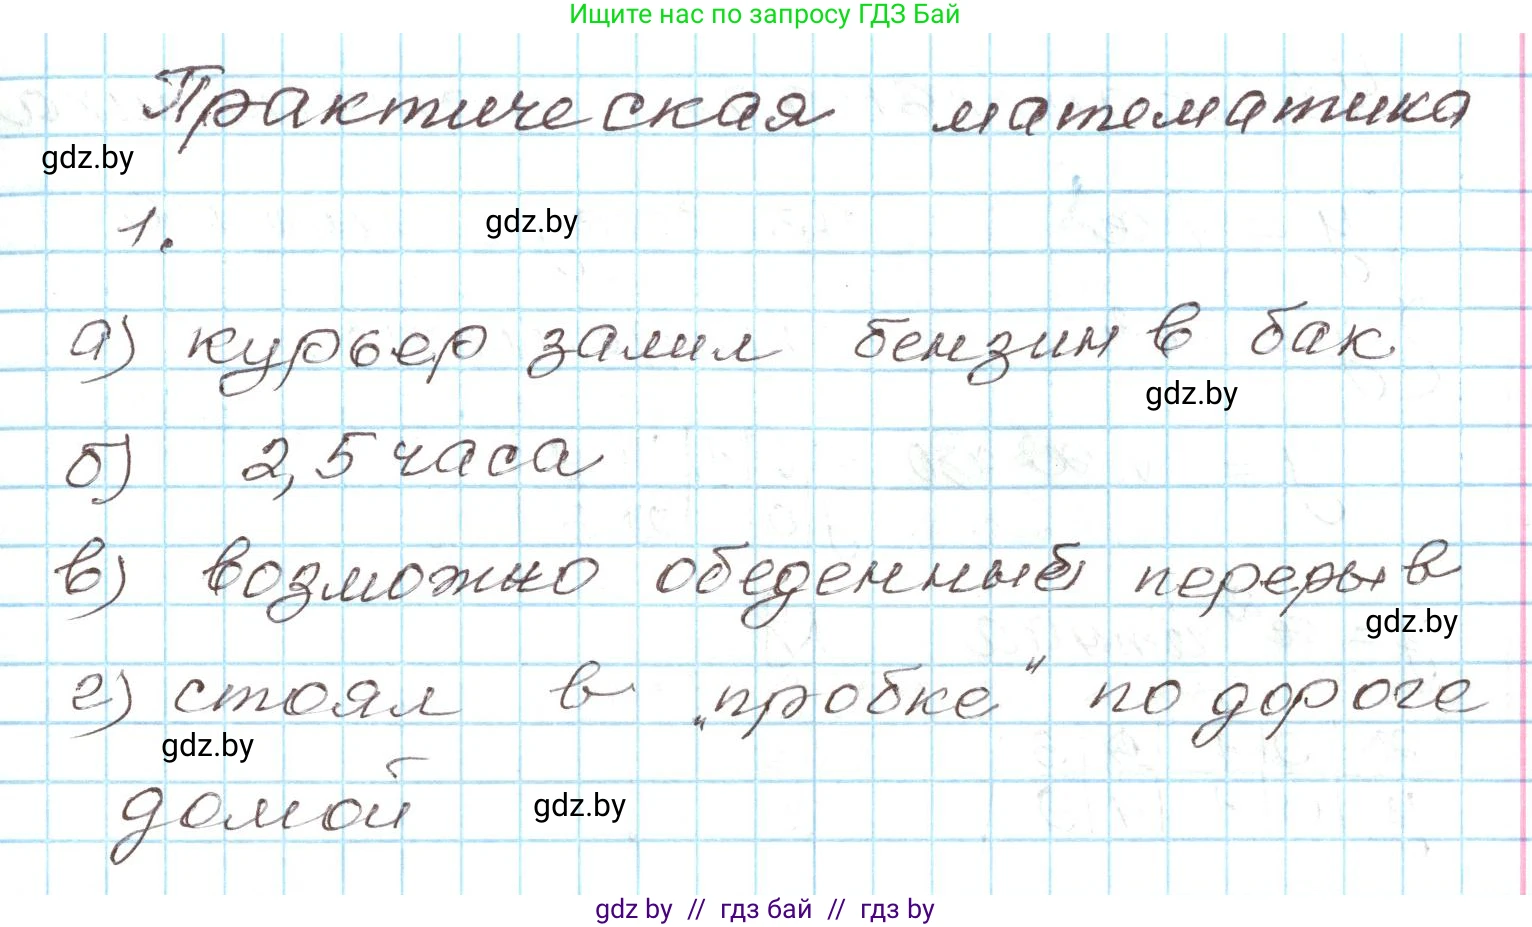 Ищите нас по запросу ГДЗ Бай
Практическая математика
gdz.by
1.
gdz.by
а) курьер залил бензин в бак
gdz.by
б) 2,5 часа
в) возможно обеденный перерыв
gdz.by
г) стоял в „пробке" по дороге
gdz.by
домой
gdz.by
gdz by // гдз бай // гдз by